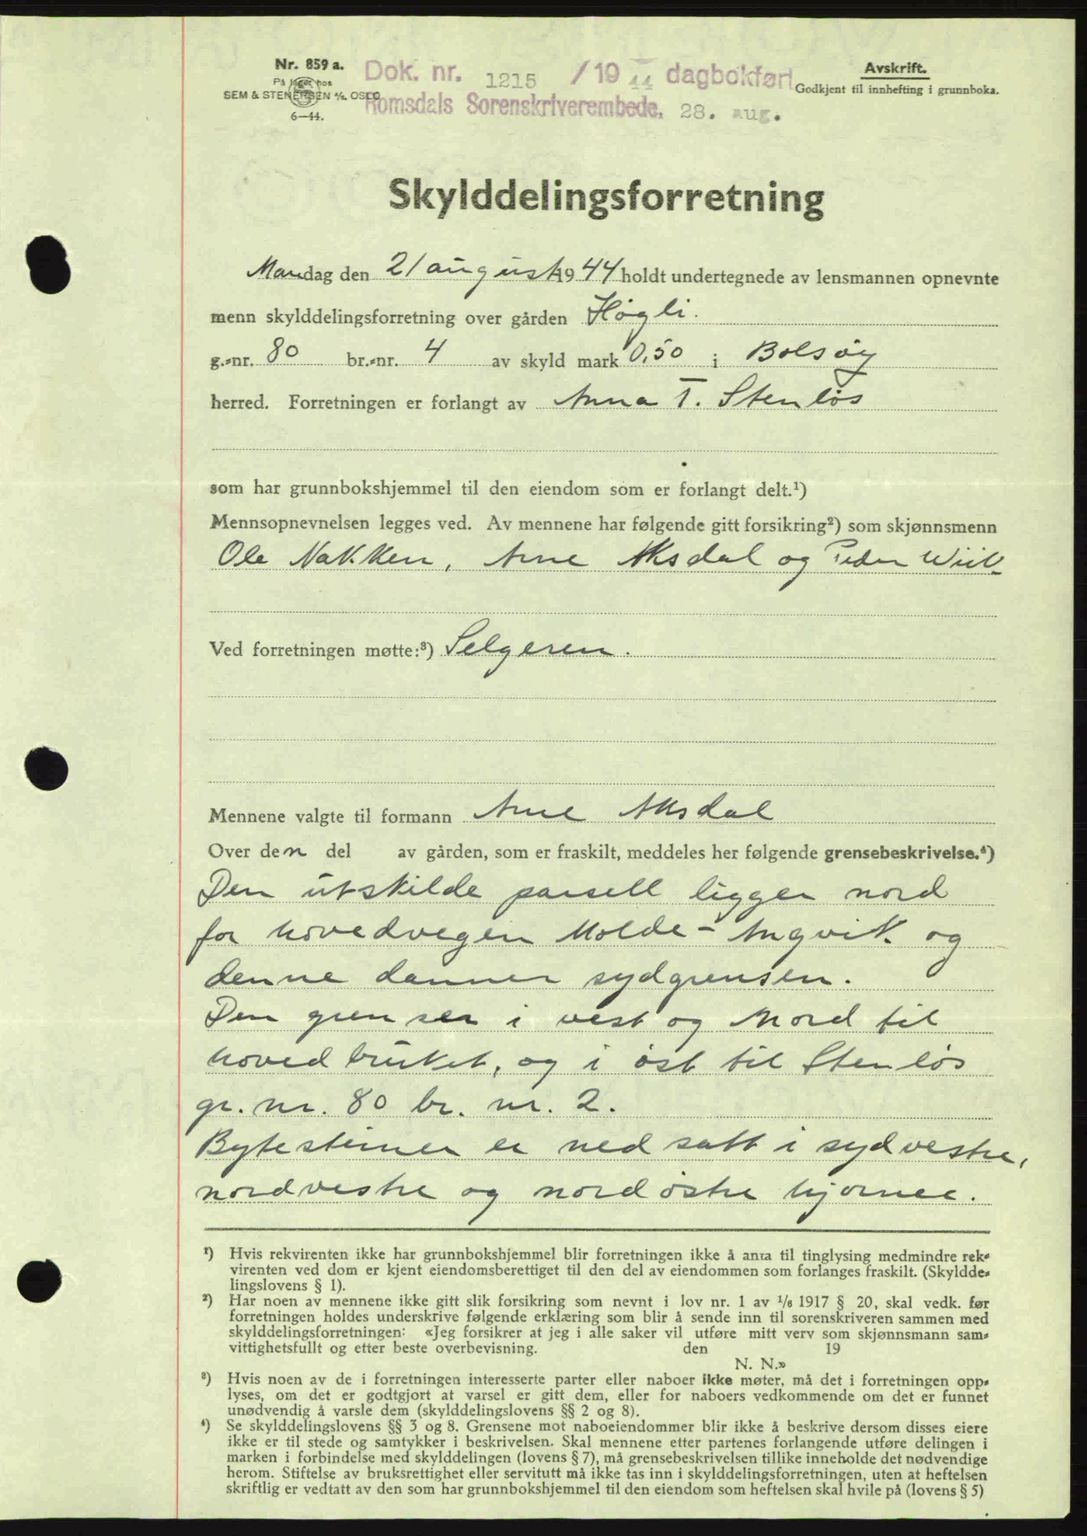 Nr. 859 a.
På lager hos
SEM & STENERSEN A/S. OSLO
6—44.
Dok. nr. 1215 / 19 44 dagbokført
Romsdals Sorenskriverembede, 28. aug.
Avskrift.
Godkjent til innhefting i grunnboka.
Skylddelingsforretning
Mandag den 21 august 1944 holdt undertegnede av lensmannen opnevnte
menn skylddelingsforretning over gården Høgli.
g.-nr. 80 br.-nr. 4 av skyld mark 0,50 i Bolsøy
herred. Forretningen er forlangt av Anna T. Stenløs
som har grunnbokshjemmel til den eiendom som er forlangt delt.¹)
Mennsopnevnelsen legges ved. Av mennene har følgende gitt forsikring²) som skjønnsmenn
Ole Nakken, Arne Aksdal og Peder Wiik
Ved forretningen møtte:³) Selgeren.
Mennene valgte til formann Arne Aksdal
Over den del av gården, som er fraskilt, meddeles her følgende grensebeskrivelse.⁴)
Den utskilde parsell ligger nord
for hovedvegen Molde - Angvik og
denne danner sydgrensen.
Den grenser i vest og Nord til
hovedbruket, og i øst til Stenløs
gr. nr. 80 br. nr. 2.
Bytesteiner er nedsatt i sydvestre,
nordvestre og nordøstre hjørnee.
¹) Hvis rekvirenten ikke har grunnbokshjemmel blir forretningen ikke å anta til tinglysing medmindre rek-
virenten ved dom er kjent eiendomsberettiget til den del av eiendommen som forlanges fraskilt. (Skyldde-
lingslovens § 1).
²) Har noen av mennene ikke gitt slik forsikring som nevnt i lov nr. 1 av 1/6 1917 § 20, skal vedk. før
forretningen holdes underskrive følgende erklæring som blir å sende inn til sorenskriveren sammen med
skylddelingsforretningen: «Jeg forsikrer at jeg i alle saker vil utføre mitt verv som skjønnsmann sam-
vittighetsfullt og etter beste overbevisning. den 19
N. N.»
³) Hvis noen av de i forretningen interesserte parter eller naboer ikke møter, må det i forretningen opp-
lyses, om det er godtgjort at varsel er gitt dem, eller for naboers vedkommende om det er funnet
unødvendig å varsle dem (skylddelingslovens §§ 2 og 8).
⁴) Se skylddelingslovens §§ 3 og 8. Grensene mot naboeiendommer blir ikke å beskrive dersom disses eiere
ikke er til stede og samtykker i beskrivelsen. Skal mennene etter partenes forlangende utføre delingen i
marken i forbindelse med skylddelingen (lovens § 7), må grensebeskrivelsen tillike inneholde det nødvendige
herom. Stiftelse av bruksrettighet eller servitutt må ikke tas inn i skylddelingsforretningen, uten at heftelsen
skriftlig er vedtatt av den som har grunnbokshjemmel til den eiendom som heftelsen skal hvile på (lovens § 5)